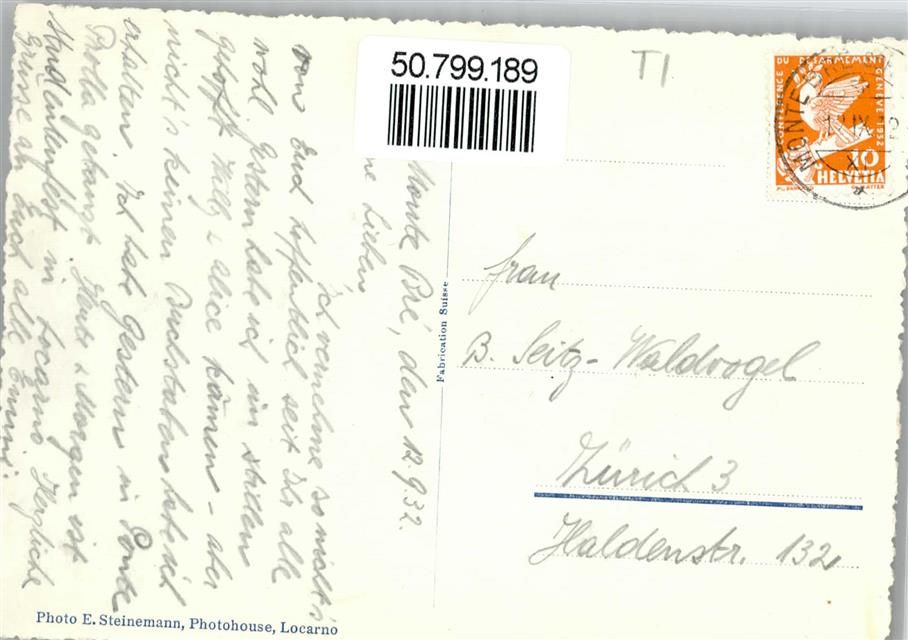 50.799.189
T1
CONFERENCE DU DESARMEMENT GENEVE 1932
10
HELVETIA
MONTE BRE
12.IX.
XI
Monte Bré, den 12.9.32.
ne Lieben,
Ich vernehme so nichts
von Euch hoffentlich seit Ihr alle
wohl. Gestern habe ich im stillen
gehofft Willy & Alice kämen – aber
nicht's keinen Buchstaben habe ich
erhalten. Ich habe Gestern in Ponte
Brolla getanzt. Heute & Morgen ist
Studentenfest in Locarno. Herzliche
Grüsse an Euch alle Emmi.
Fabrication Suisse
Frau
B. Seitz-Waldvogel
Zürich 3
Haldenstr. 132
Photo E. Steinemann, Photohouse, Locarno